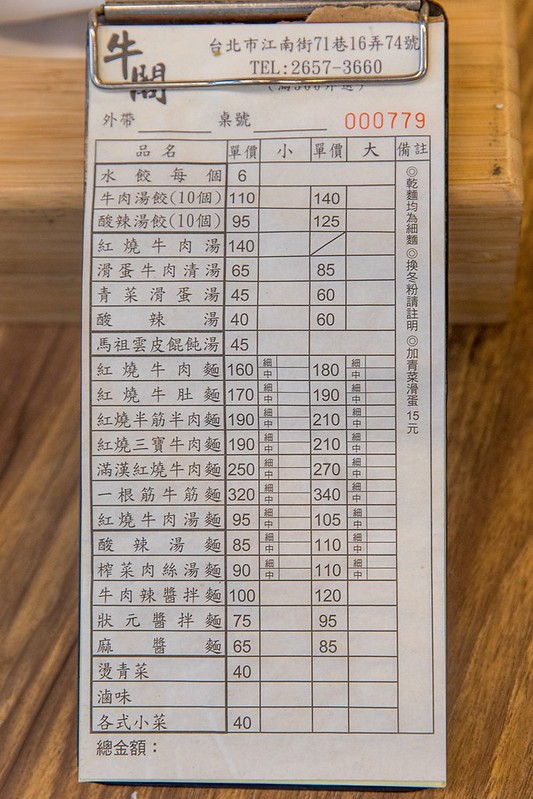 牛閣
台北市江南街71巷16弄74號
TEL:2657-3660
外帶 桌號 000779
品名 單價 小 單價 大 備註
水餃每個 6
牛肉湯餃(10個) 110 140
酸辣湯餃(10個) 95 125
紅燒牛肉湯 140
滑蛋牛肉清湯 65 85
青菜滑蛋湯 45 60
酸辣湯 40 60
馬祖雲皮餛飩湯 45
紅燒牛肉麵 160 細 中 180 細 中
紅燒牛肚麵 170 細 中 190 細 中
紅燒半筋半肉麵 190 細 中 210 細 中
紅燒三寶牛肉麵 190 細 中 210 細 中
滿漢紅燒牛肉麵 250 細 中 270 細 中
一根筋牛筋麵 320 細 中 340 細 中
紅燒牛肉湯麵 95 細 中 105 細 中
酸辣湯麵 85 細 中 110 細 中
榨菜肉絲湯麵 90 細 中 110 細 中
牛肉辣醬拌麵 100 120
狀元醬拌麵 75 95
麻醬麵 65 85
燙青菜 40
滷味
各式小菜 40
◎乾麵均為細麵◎換冬粉請註明◎加青菜滑蛋15元
總金額：